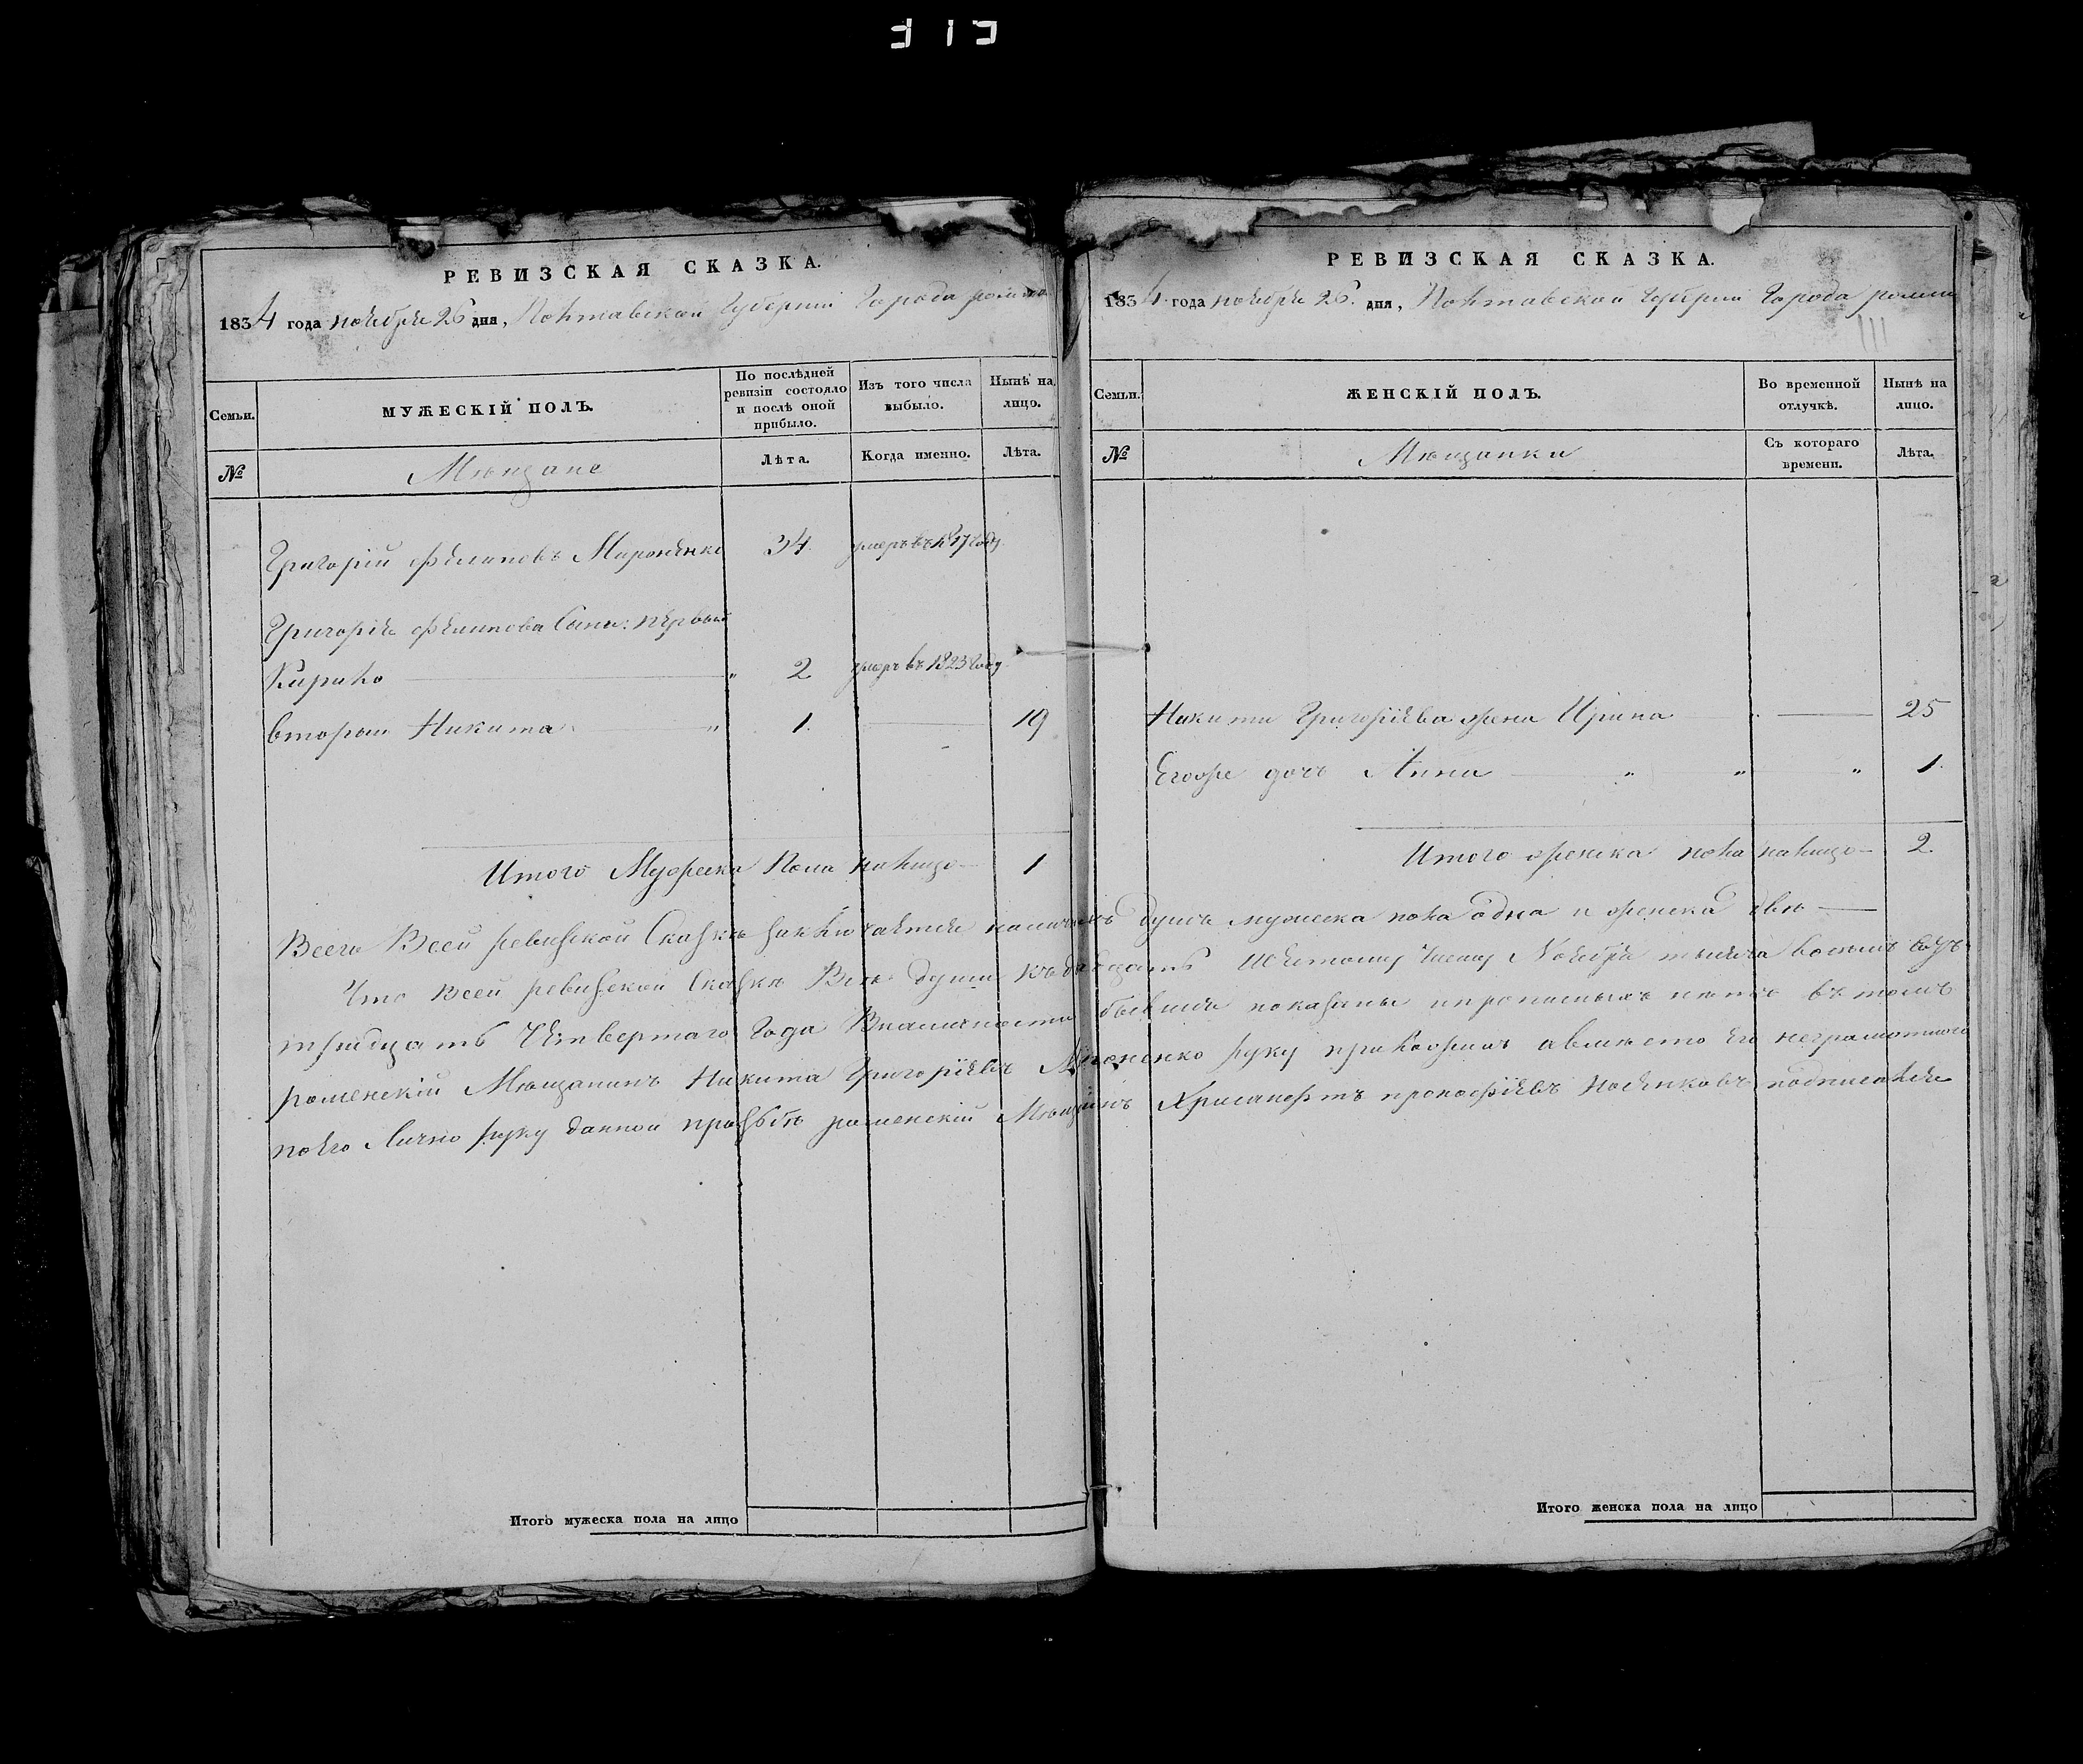 313
РЕВИЗСКАЯ СКАЗКА.
1834 года ноября 26 дня, Полтавской Губернии Города ромна
Семьи.
МУЖЕСКІЙ ПОЛЪ.
По послѣдней ревизіи состояло и послѣ оной прибыло.
Изъ того числа выбыло.
Нынѣ на лицо.
№
Мѣщане
Лѣта.
Когда именно.
Лѣта.
Григорій Филиповъ Мироненко 34 умеръ въ 1817 году.
Григорія Филипова Сыны: первый
Кирило " 2 умеръ въ 1823 году.
второй Никита " 1. 19
Итого Мужеска Пола налицо 1
РЕВИЗСКАЯ СКАЗКА.
1834 года ноября 26 дня, Полтавской Губернии Города
Семьи.
ЖЕНСКІЙ ПОЛЪ.
Во временной отлучкѣ.
Нынѣ на лицо.
№
Мѣщанки
Съ котораго времени.
Лѣта.
Никити Григоріева жена Ирина 25
Егоже дочь Анна " " " 1.
Итого женска пола налицо 2.
Всего Всей ревизской Сказкѣ заключается наличныхъ душъ мужеска пола одна и женска двѣ
Что Всей ревизской Сказкѣ Всѣ души къ двадцать Шестому Числу Ноября тысяча восемъ сотъ
тридцать Четвертаго Года Вналичности бывшия показаны ипрописныхъ нѣтъ въ томъ
роменскій Мѣщанинъ Никита Григоріевъ Мироненко руку приложилъ авмѣсто Его неграмотного
поего Лично руку данной прозьбѣ роменскій Мѣщанинъ Хрисанфъ прокофіевъ подписался
Итого мужеска пола на лицо
Итого женска пола на лицо